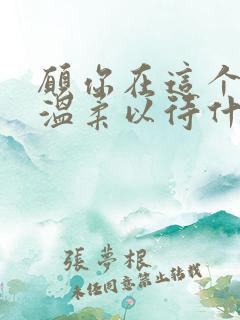 願你在這个
温柔以待什
張夢根
未经同意禁止转载